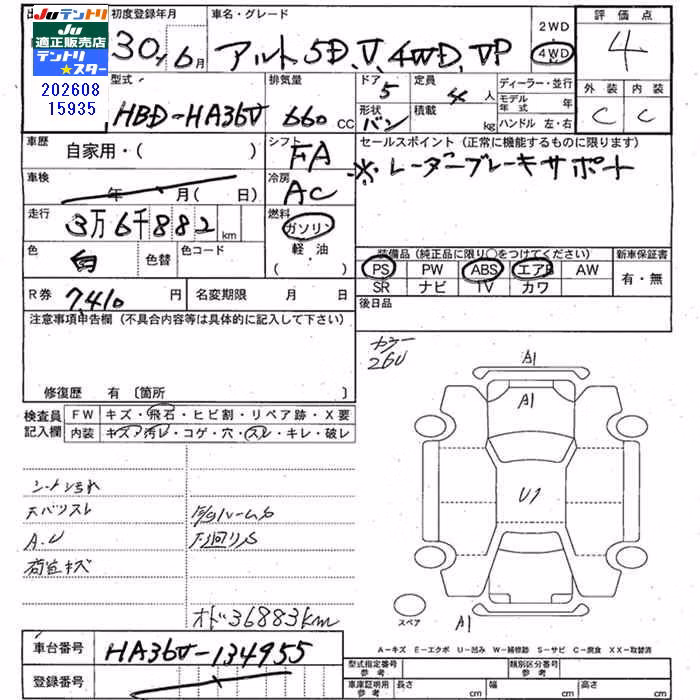 JUテントリ
JU
適正販売店
テントリ
★スター
202608
15935
初度登録年月
30年6月
車名・グレード
アルト5D.V.4WD.VP
2WD
4WD
評価点
4
外装 内装
C C
型式
HBD-HA36V
排気量
660 CC
ドア
5
形状
バン
定員
4人
積載
kg
ディーラー・並行
モデル年式 年
ハンドル 左・右
車歴
自家用・( )
シフト
FA
セールスポイント(正常に機能するものに限ります)
※レーダーブレーキサポート
車検
年 月( 日)
冷房
AC
走行
3万6千882km
燃料
ガソリン
軽油
色
白
色替
色コード
装備品(純正品に限り○をつけてください)
PS PW ABS エアB AW
SR ナビ TV カワ
新車保証書
有・無
後日品
R券 7,410円
名変期限 月 日
注意事項申告欄(不具合内容等は具体的に記入して下さい)
修復歴 有〔箇所 〕
検査員
記入欄
FW キズ・飛石・ヒビ割・リペア跡・X要
内装 キズ・汚レ・コゲ・穴・スレ・キレ・破レ
カラー
26U
A1
A1
U1
A1
スペア
シート汚れ
A.U
荷室キズ
オドー36883km
A-キズ E-エクボ U-凹み W-補修跡 S-サビ C-腐食 XX-取替済
車台番号
HA36V-134955
登録番号
型式指定番号
参考
類別区分番号
参考
車庫証明用
参考
長さ cm
幅 cm
高さ cm